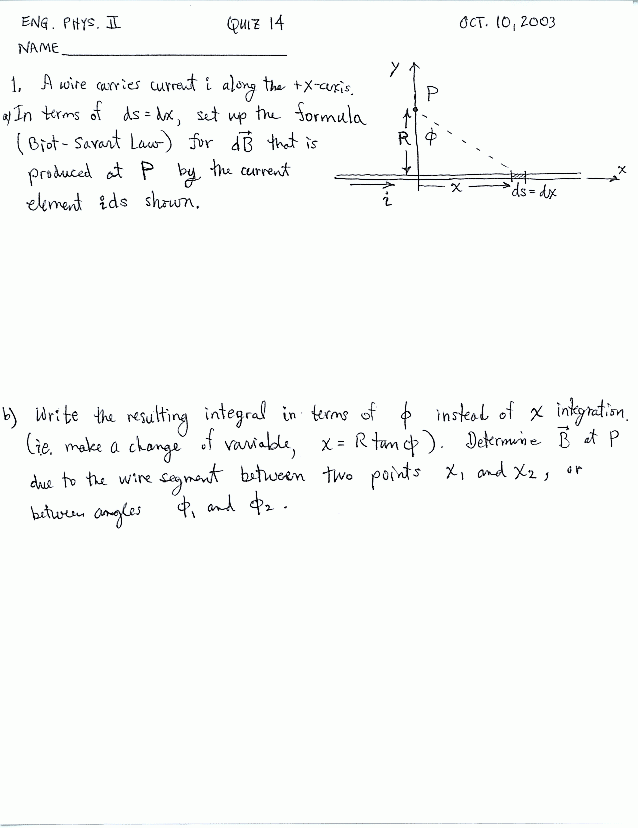 ENG. PHYS. II QUIZ 14 OCT. 10, 2003
NAME
1. A wire carries current i along the +x-axis.
a) In terms of ds = dx, set up the formula
(Biot-Savart Law) for dB⃗ that is
produced at P by the current
element ids shown.
y
P
R
ϕ
x
x
i
ds = dx
b) Write the resulting integral in terms of ϕ instead of x integration.
(ie. make a change of variable, x = R tan ϕ). Determine B⃗ at P
due to the wire segment between two points x₁ and x₂, or
between angles ϕ₁ and ϕ₂.